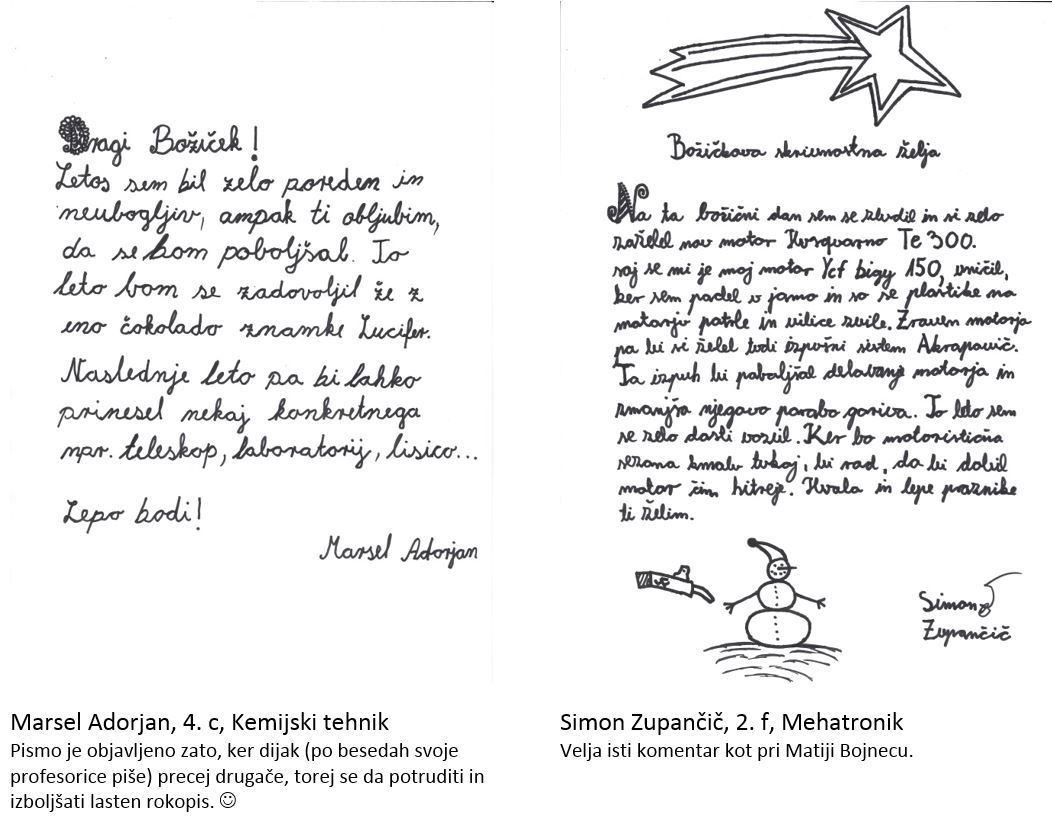 Dragi Božiček!
Letos sem bil zelo poreden in
neubogljiv, ampak ti obljubim,
da se bom poboljšal. To
leto bom se zadovoljil že z
eno čokolado znamke Lucifer.
Naslednje leto pa bi lahko
prinesel nekaj konkretnega
npr. teleskop, laboratorij, lisico...
Lepo bodi!
Marsel Adorjan
Marsel Adorjan, 4. c, Kemijski tehnik
Pismo je objavljeno zato, ker dijak (po besedah svoje
profesorice piše) precej drugače, torej se da potruditi in
izboljšati lasten rokopis. ☺
Božičkova skrivnostna želja
Na ta božični dan sem se zbudil in si zelo
zaželel nov motor Husqvarno Te 300.
saj se mi je moj motor Ycf bigy 150, uničil,
ker sem padel v jamo in so se plastike na
motorju potrle in vilice zvile. Zraven motorja
pa bi si želel tudi izpušni sistem Akrapovič.
Ta izpuh bi poboljšal delovanje motorja in
zmanjša njegovo porabo goriva. To leto sem
se zelo dosti vozil. Ker bo motoristična
sezona kmalu tukaj, bi rad, da bi dobil
motor čim hitreje. Hvala in lepe praznike
ti želim.
Simon
Zupančič
Simon Zupančič, 2. f, Mehatronik
Velja isti komentar kot pri Matiji Bojnecu.